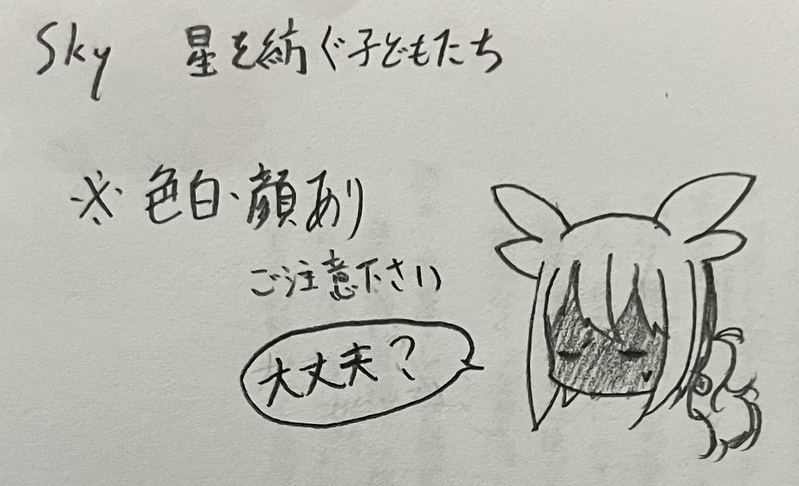 Sky 星を紡ぐ子どもたち
※色白・顔あり
ご注意下さい
大丈夫？